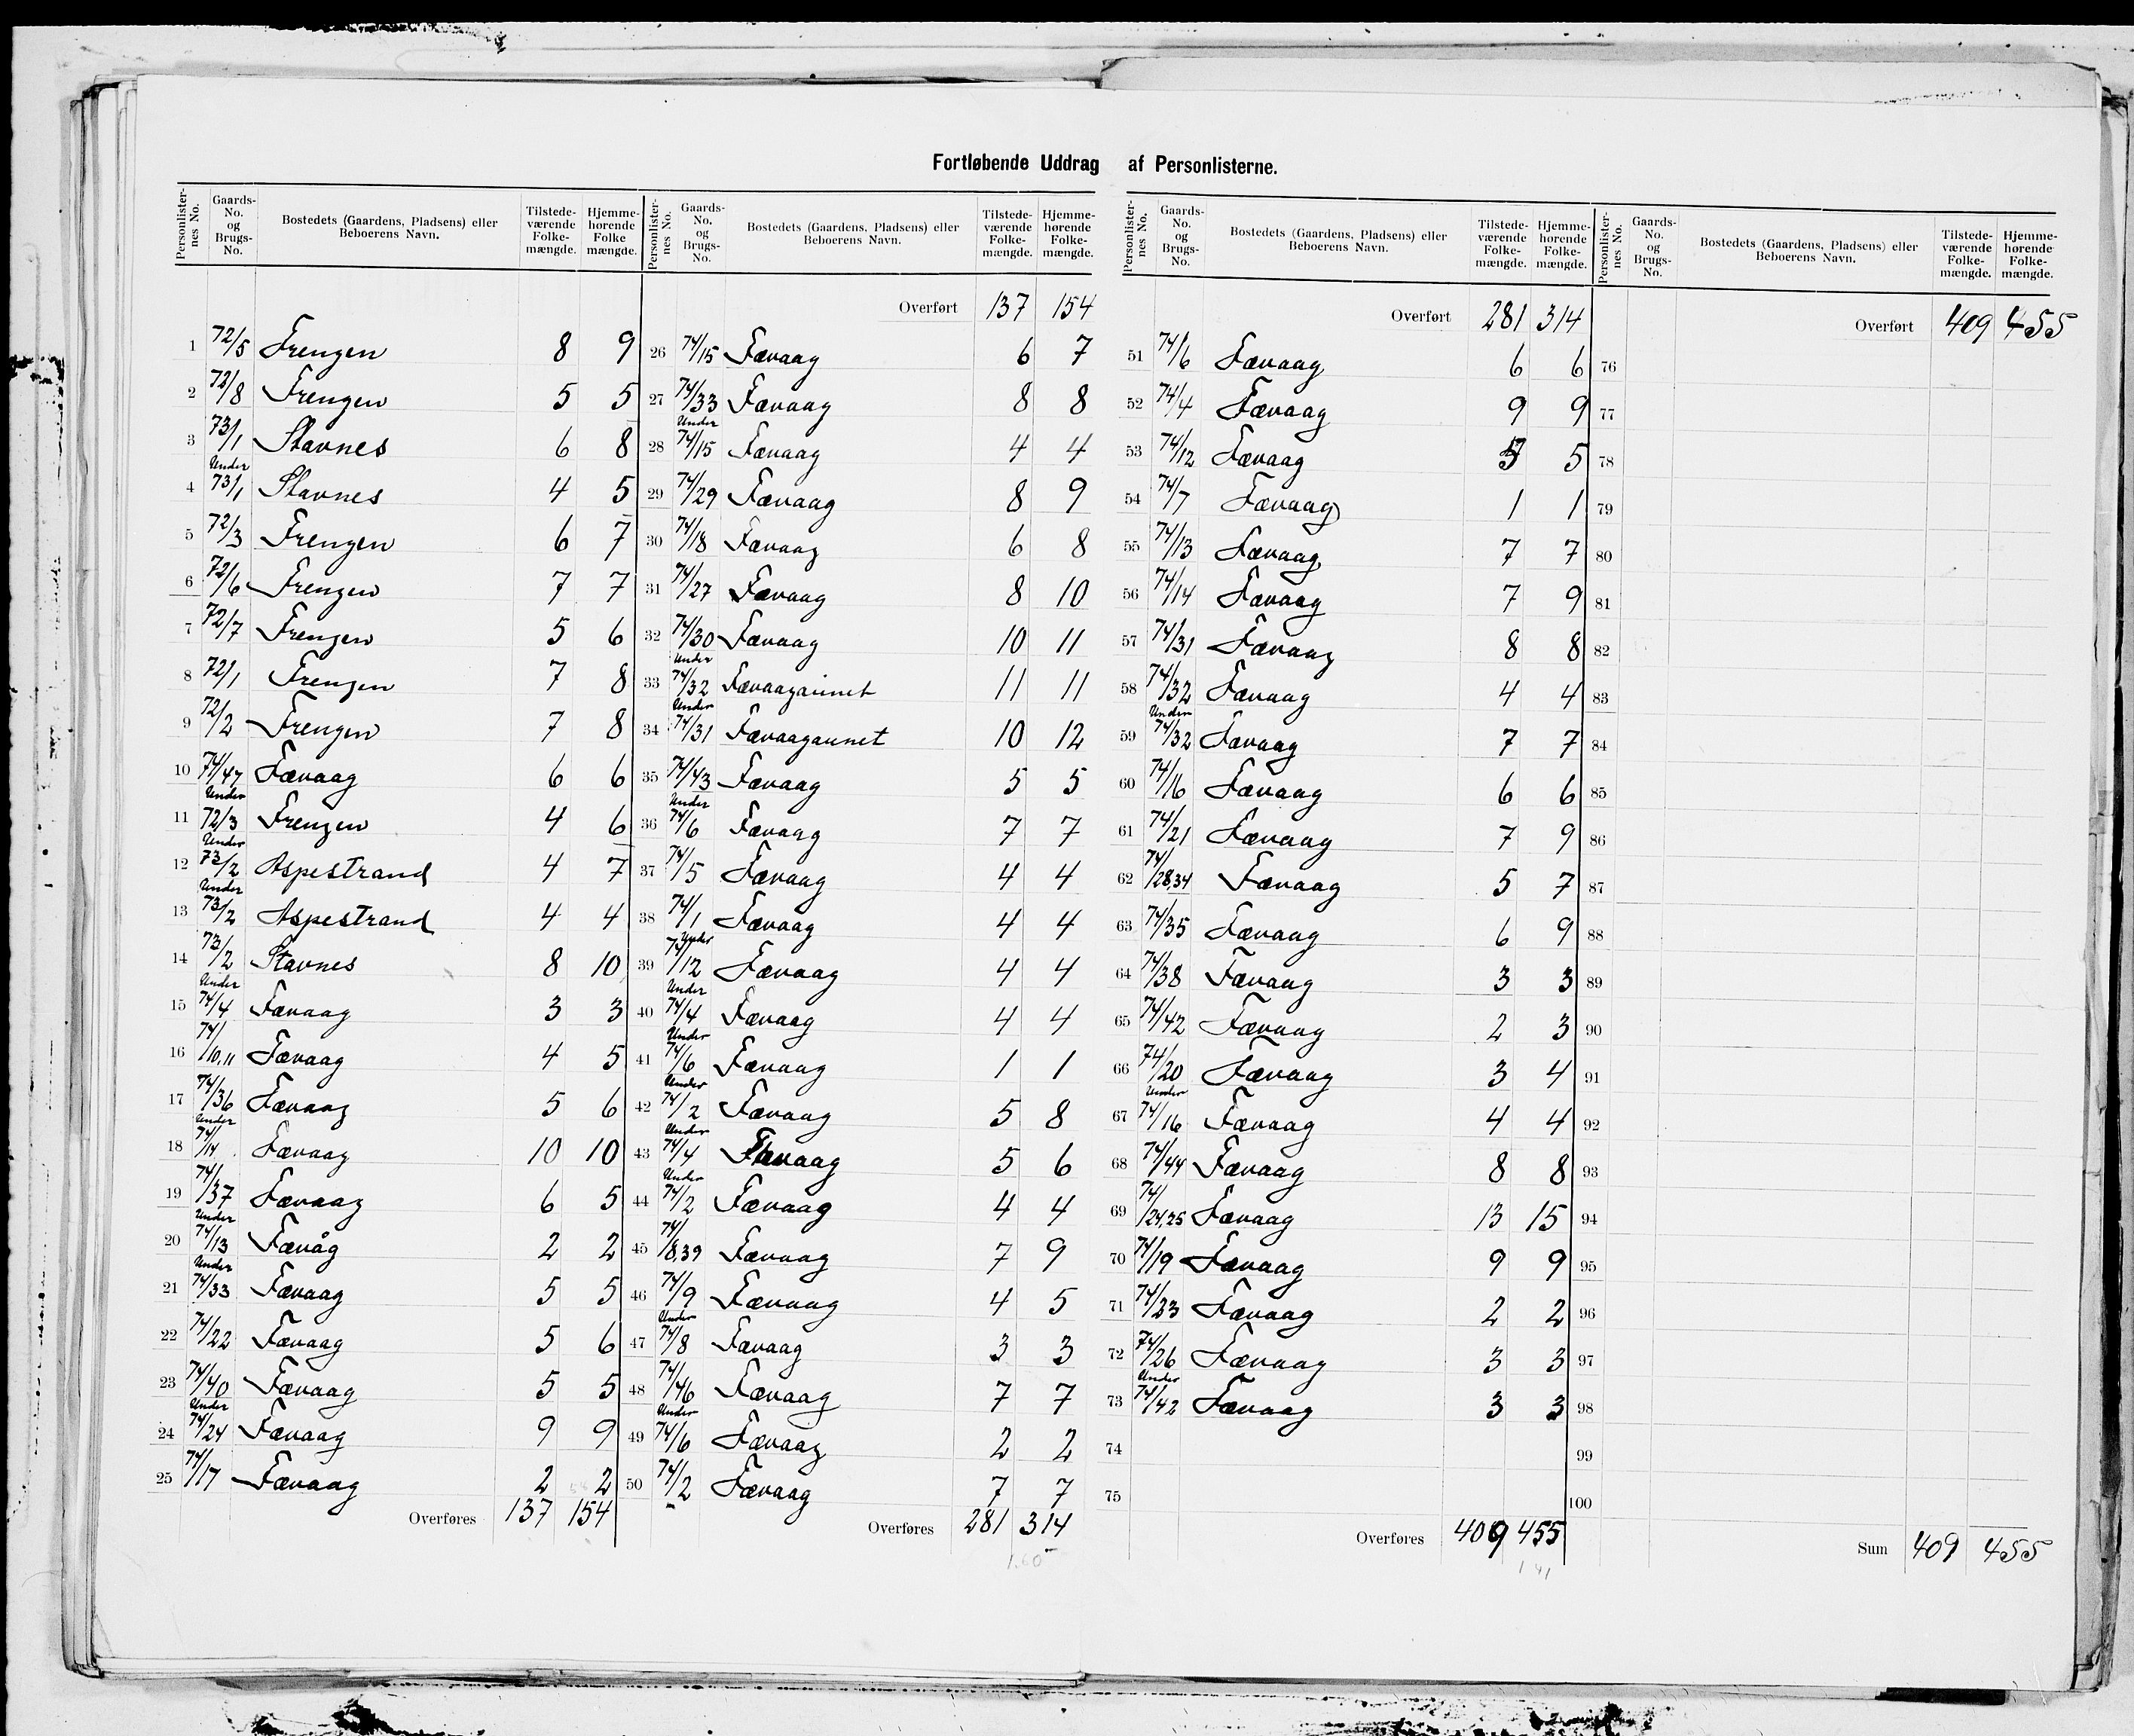 Fortløbende Uddrag af Personlisterne.
Personlister-nes No. Gaards-No. og Brugs-No. Bostedets (Gaardens, Pladsens) eller Beboerens Navn. Tilstede-værende Folke-mængde. Hjemme-hørende Folke mængde.
1 72/5 Frengen 8 9
2 72/8 Frengen 5 5
3 73/1 Stavnes 6 8
4 Under 73/1 Stavnes 4 5
5 72/3 Frengen 6 7
6 72/6 Frengen 7 7
7 72/7 Frengen 5 6
8 72/1 Frengen 7 8
9 72/2 Frengen 7 8
10 74/47 Fævaag 6 6
11 Under 72/3 Frengen 4 6
12 Under 73/2 Aspestrand 4 7
13 Under 73/2 Aspestrand 4 4
14 73/2 Stavnes 8 10
15 Under 74/4 Fævaag 3 3
16 74/10,11 Fævaag 4 5
17 74/36 Fævaag 5 6
18 Under 74/14 Fævaag 10 10
19 74/37 Fævaag 6 5
20 Under 74/13 Fævåg 2 2
21 Under 74/33 Fævaag 5 5
22 74/22 Fævaag 5 6
23 74/40 Fævaag 5 5
24 Under 74/24 Fævaag 9 9
25 74/17 Fævaag 2 2
Overføres 137 154
Personlister-nes No. Gaards-No. og Brugs-No. Bostedets (Gaardens, Pladsens) eller Beboerens Navn. Tilstede-værende Folke-mængde. Hjemme-hørende Folke-mængde.
Overført 137 154
26 74/15 Fævaag 6 7
27 74/33 Fævaag 8 8
28 Under 74/15 Fævaag 4 4
29 74/29 Fævaag 8 9
30 74/18 Fævaag 6 8
31 74/27 Fævaag 8 10
32 74/30 Fævaag 10 11
33 Under 74/32 Fævaagaunet 11 11
34 Under 74/31 Fævaagaunet 10 12
35 74/43 Fævaag 5 5
36 Under 74/6 Fævaag 7 7
37 74/5 Fævaag 4 4
38 74/1 Fævaag 4 4
39 Under 74/12 Fævaag 4 4
40 Under 74/4 Fævaag 4 4
41 Under 74/6 Fævaag 1 1
42 Under 74/2 Fævaag 5 8
43 Under 74/4 Fævaag 5 6
44 Under 74/2 Fævaag 4 4
45 74/8,39 Fævaag 7 9
46 74/9 Fævaag 4 5
47 Under 74/8 Fævaag 3 3
48 74/46 Fævaag 7 7
49 Under 74/6 Fævaag 2 2
50 74/2 Fævaag 7 7
Overføres 281 314
Personlister-nes No. Gaards-No. og Brugs-No. Bostedets (Gaardens, Pladsens) eller Beboerens Navn. Tilstede-værende Folke-mængde. Hjemme-hørende Folke-mængde.
Overført 281 314
51 74/6 Fævaag 6 6
52 74/4 Fævaag 9 9
53 74/12 Fævaag 5 5
54 74/7 Fævaag 1 1
55 74/13 Fævaag 7 7
56 74/14 Fævaag 7 9
57 74/31 Fævaag 8 8
58 74/32 Fævaag 4 4
59 Under 74/32 Fævaag 7 7
60 74/16 Fævaag 6 6
61 74/21 Fævaag 7 9
62 74/28,34 Fævaag 5 7
63 74/35 Fævaag 6 9
64 74/38 Fævaag 3 3
65 74/42 Fævaag 2 3
66 74/20 Fævaag 3 4
67 Under 74/16 Fævaag 4 4
68 74/44 Fævaag 8 8
69 74/24,25 Fævaag 13 15
70 74/19 Fævaag 9 9
71 74/23 Fævaag 2 2
72 74/26 Fævaag 3 3
73 Under 74/42 Fævaag 3 3
74
75
Overføres 409 455
Personlister-nes No. Gaards-No. og Brugs-No. Bostedets (Gaardens, Pladsens) eller Beboerens Navn. Tilstede-værende Folke-mængde. Hjemme-hørende Folke-mængde.
Overført 409 455
76
77
78
79
80
81
82
83
84
85
86
87
88
89
90
91
92
93
94
95
96
97
98
99
100
Sum 409 455